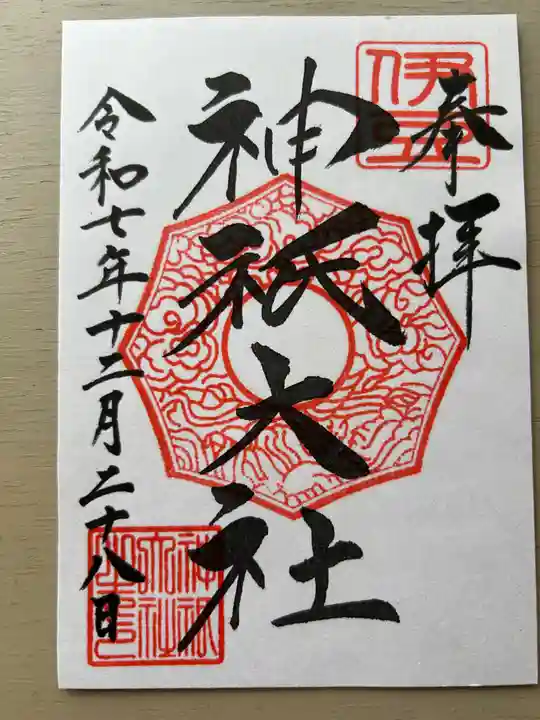 奉拝
伊豆
神祇大社
令和七年十二月二十八日
神祇
大社